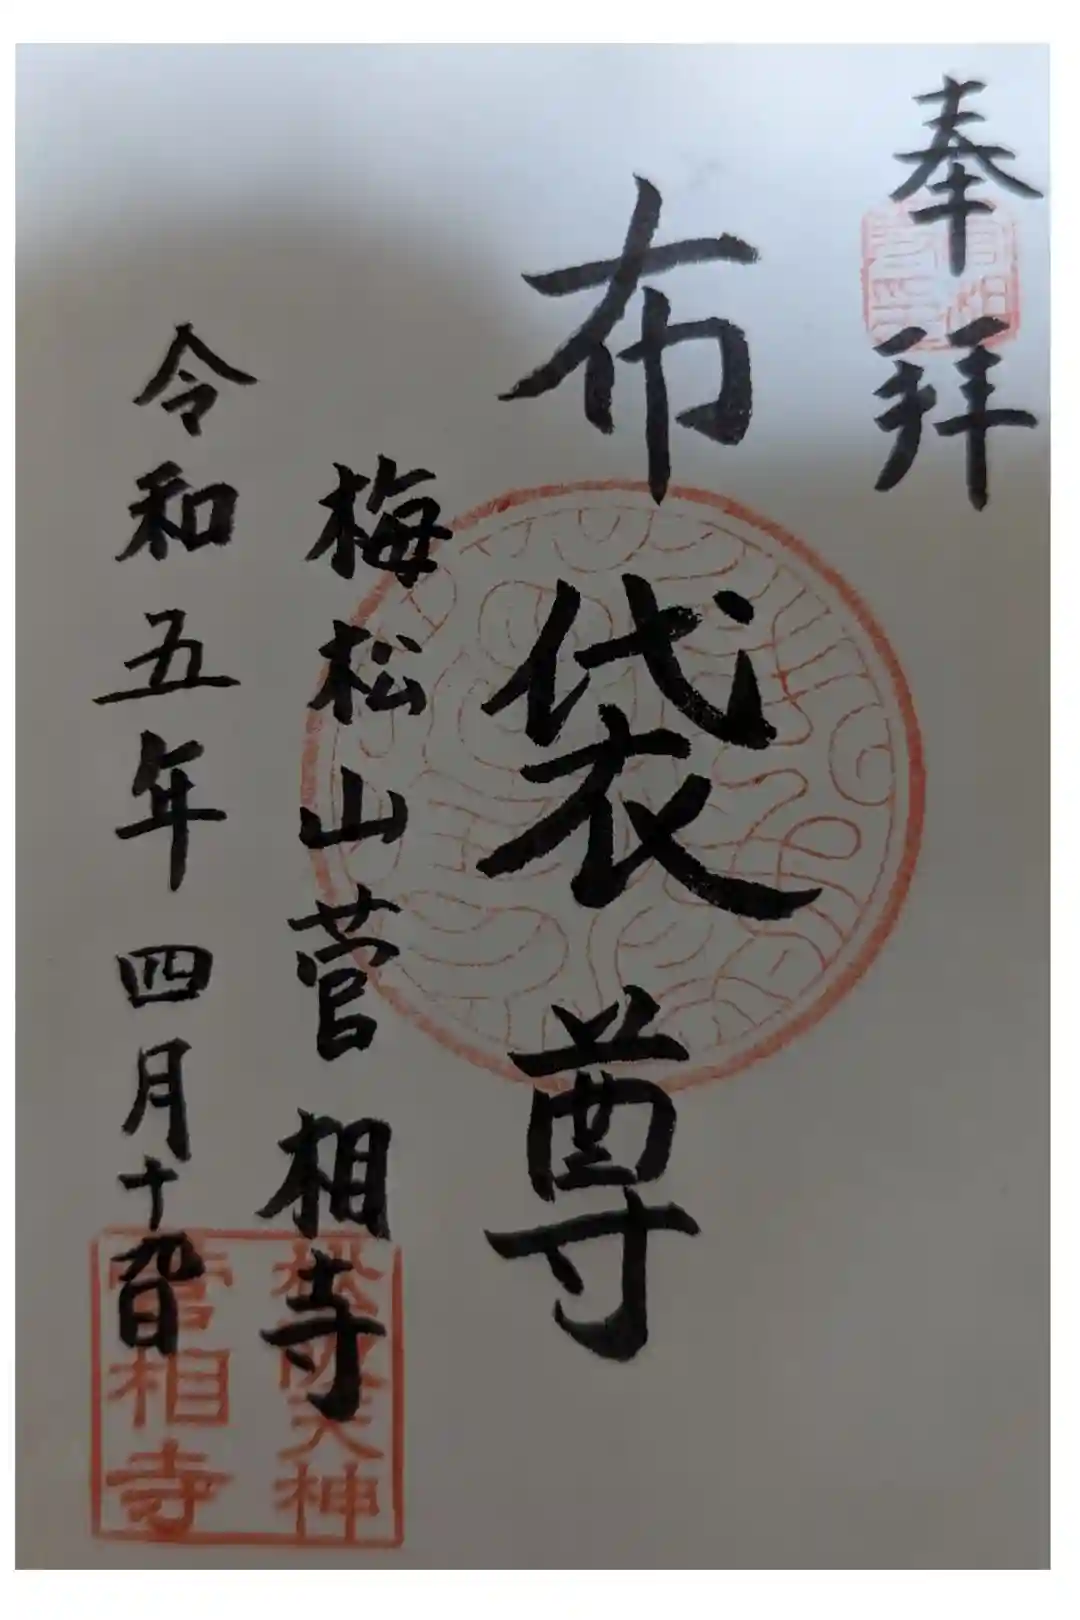 奉拝
布袋尊
梅松山菅相寺
令和五年四月十九日
天神
菅相寺